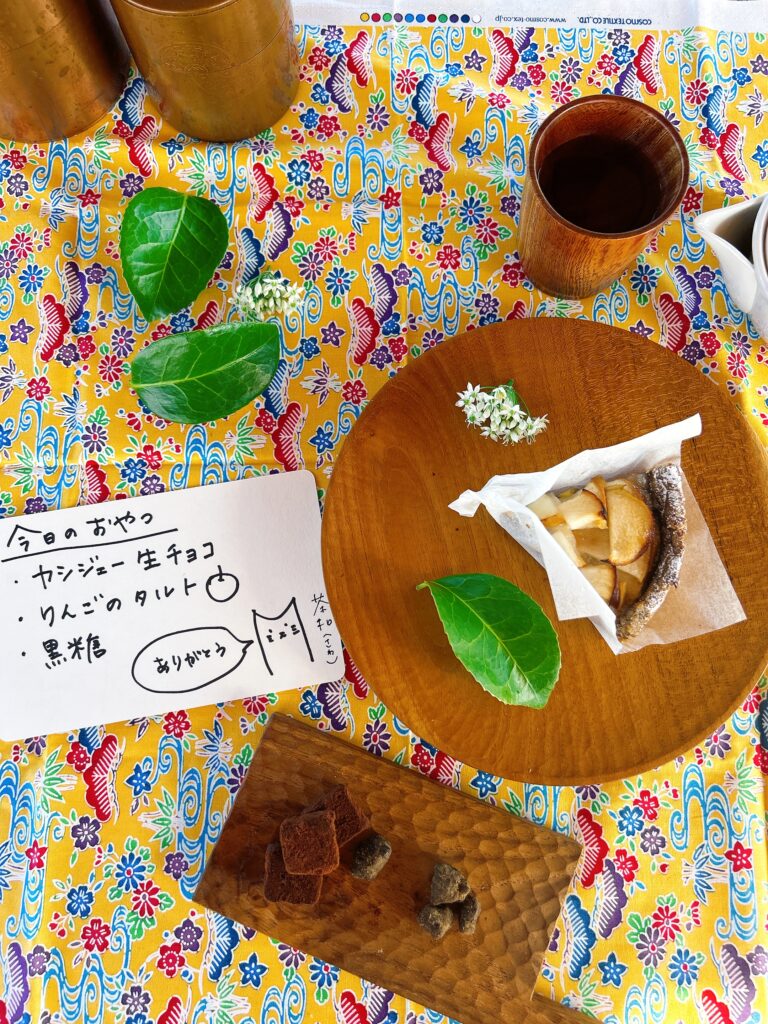 COSMO TEXTILE CO., LTD. www.cosmo-tex.co.jp
今日のおやつ
・カシジェー 生チョコ
・りんごのタルト
・黒糖
ありがとう
茶和(さわ)